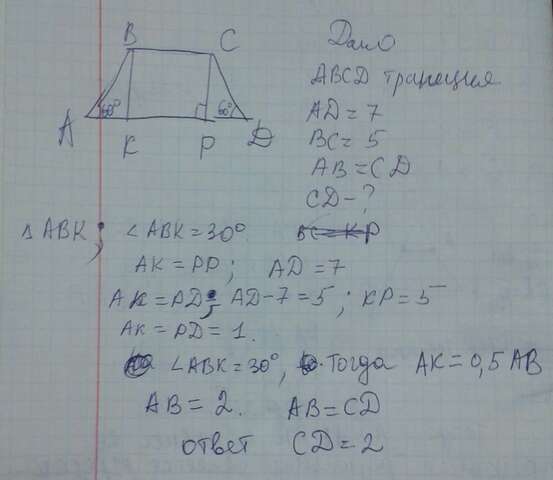 B C
60° 60°
A K P D
Дано
ABCD трапеция
AD = 7
BC = 5
AB = CD
CD - ?
BC = KP
△ ABK; ∠ABK = 30°
AK = PD; AD = 7
AK = PD; AD - 7 = 5; KP = 5
AK = PD = 1.
∠ABK = 30°, Тогда AK = 0,5 AB
AB = 2. AB = CD
ответ CD = 2